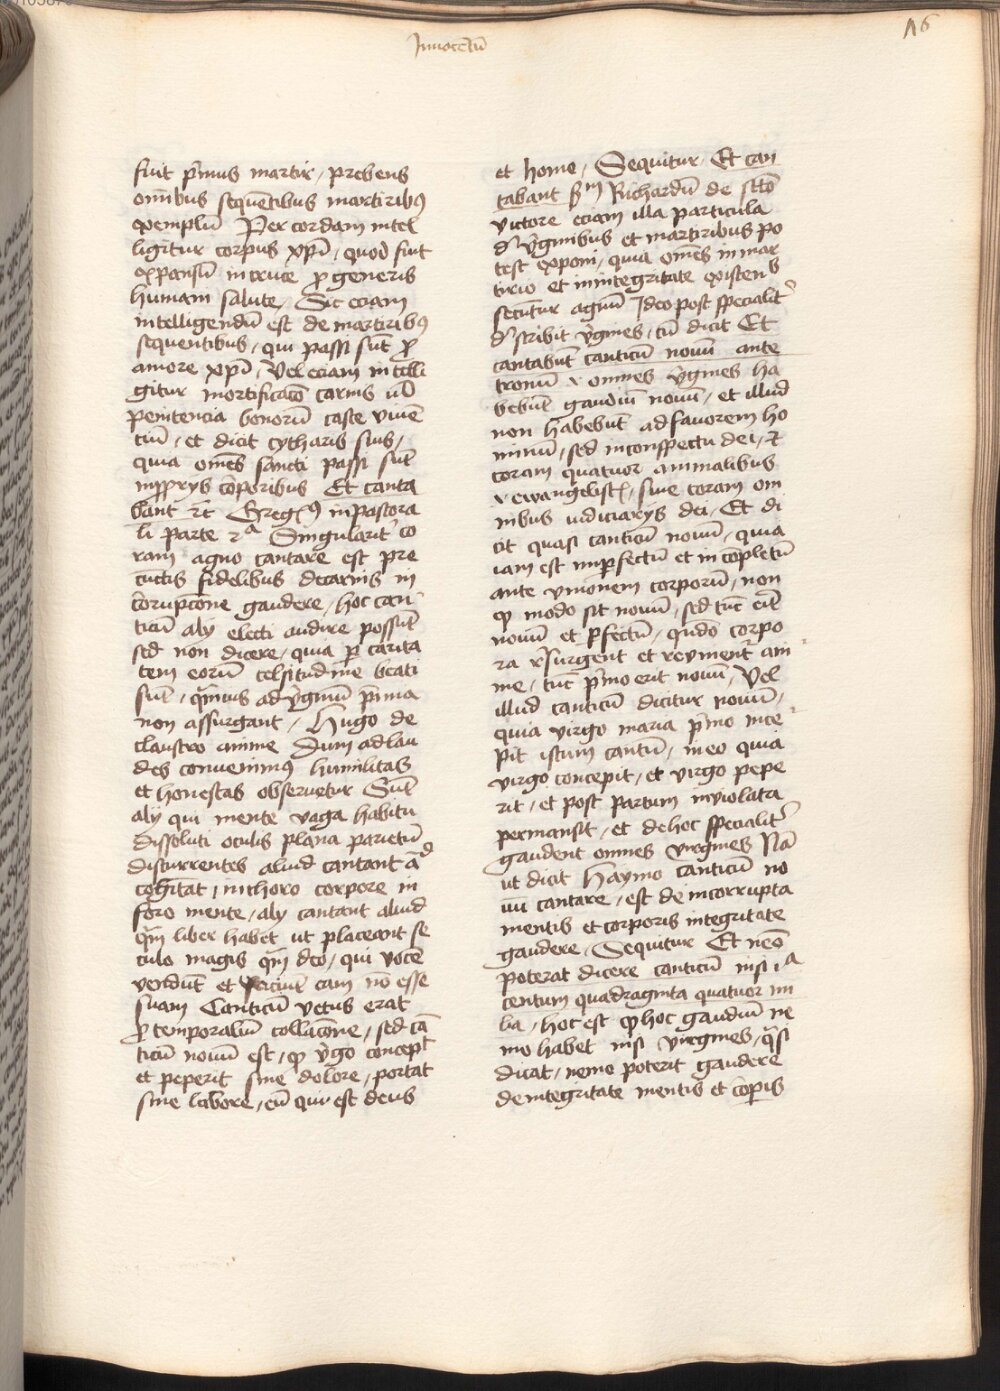 Innocētū
16
fuit p̄mus martir / prebens
om̄ibus sequētibus martiribꝰ
exemplū Per cordam intel
ligitur corpus xp̄i / quod fuit
expansū in cruce ꝓ generis
humani salute / Sic eciam
intelligendū est de martiribꝰ
sequentibus / qui passi sūt ꝓ
amore xp̄i / Vel eciam intelli
gitur mortificacō carnis ul̄
penitencia bonorū caste viuē
ciū / et dicit cytharis suis /
quia om̄s sancti passi sūt
in ꝓprijs corporibus Et canta
bant rc̄ Gregꝰ in pastora
li parte 2ᵃ Singularit̓ co
ram agno cantare est pre
cūctis fidelibus de carnis in
corupcōne gaudere / hoc can
ticū alij electi audire possūt
sed non dicere / quia ꝑ carita
tem eorū celsitudine beati
sūt / q̄muis ad v̓ginū p̄mia
non assurgant / Hugo de
claustro anime Dum ad lau
des conuenimꝰ humilitas
et honestas obseruetur Sūt
alij qui mente vaga habitu
dissoluti oculis plana parietū
discurrentes aliud cantant
cogitāt / in choro corpore in
foro mente / alij cantant aliud
q̄m liber habet ut placeant se
culo magis q̄m deo / qui voce
vendūt et faciūt eam nō esse
suam Canticū vetus erat
ꝓ temporaliū collacōne / sed cā
ticū nouū est / ꝙ v̓go concepit
et peperit sine dolore / portat
sine labore / eū qui est deus
et homo / Sequitur Et can
tabant s̄m Richardū de sc̄to
victore eciam illa particula
d̓ v̓ginibus et martiribus po
test exponi / quia om̄es in mar
tirio et in integritate existens
secūtur agnū Ideo post specialit̓
d̓scribit v̓gines / cū dicit Et
cantabāt canticū nouū ante
tronū .i. omnes v̓gines ha
bebūt gaudiū nouū / et illud
non habebūt ad fauorem ho
minū / sed in conspectu dei / et
coram quatuor animalibus
.i. ewangelist / siue coram om
nibus iudiciarijs dei / Et di
cit quasi canticū nouū / quia
iam est imꝑfectū et incōpletū
ante vnionem corporū / non
ꝙ modo sit nouū / sed tūc erit
nouū et ꝑfectū / quādo corpo
ra resurgent et reuniētur ani
me / tūc p̄mo erit nouū / Vel
illud canticū dicitur nouū /
quia virgo maria p̄mo ince
pit istum cantū / in eo quia
virgo concepit / et virgo pepe
rit / et post partum inviolata
permansit / et de hoc specialit̓
gaudent omnes virgines Nā
ut dicit Haymo canticū no
uū cantare / est de incorrupta
mentis et corporis integritate
gaudere / Sequitur Et nēo
poterat dicere canticū nisi iᵃ
centum quadraginta quatuor mi
lia / hoc est ꝙ hoc gaudiū ne
mo habet nisi virgines / q̄si
dicat / nemo poterit gaudere
de integritate mentis et corꝑis